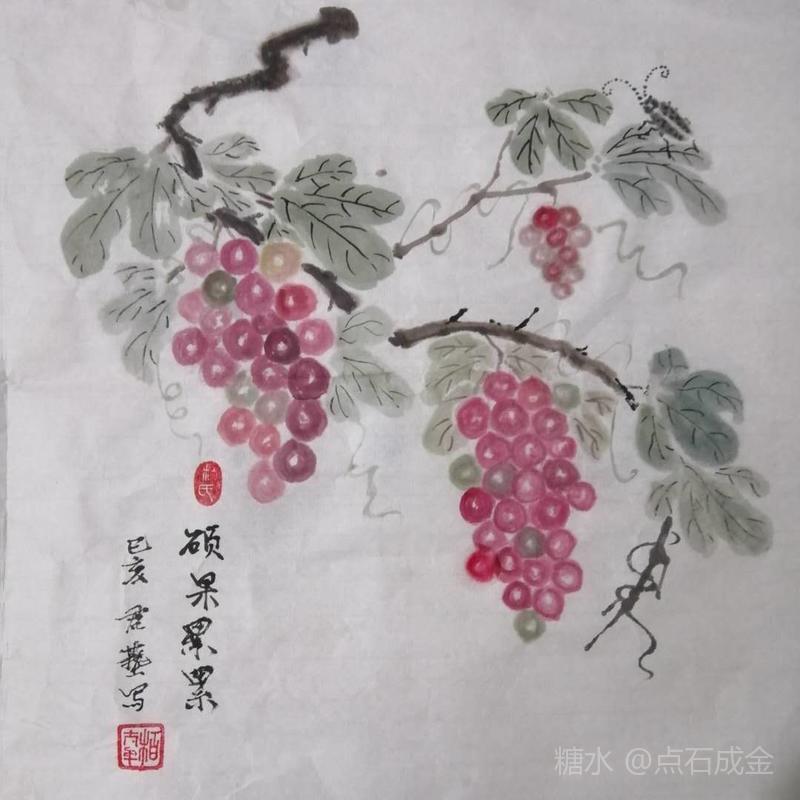 硕果累累
己亥 君艺写
糖水 @点石成金